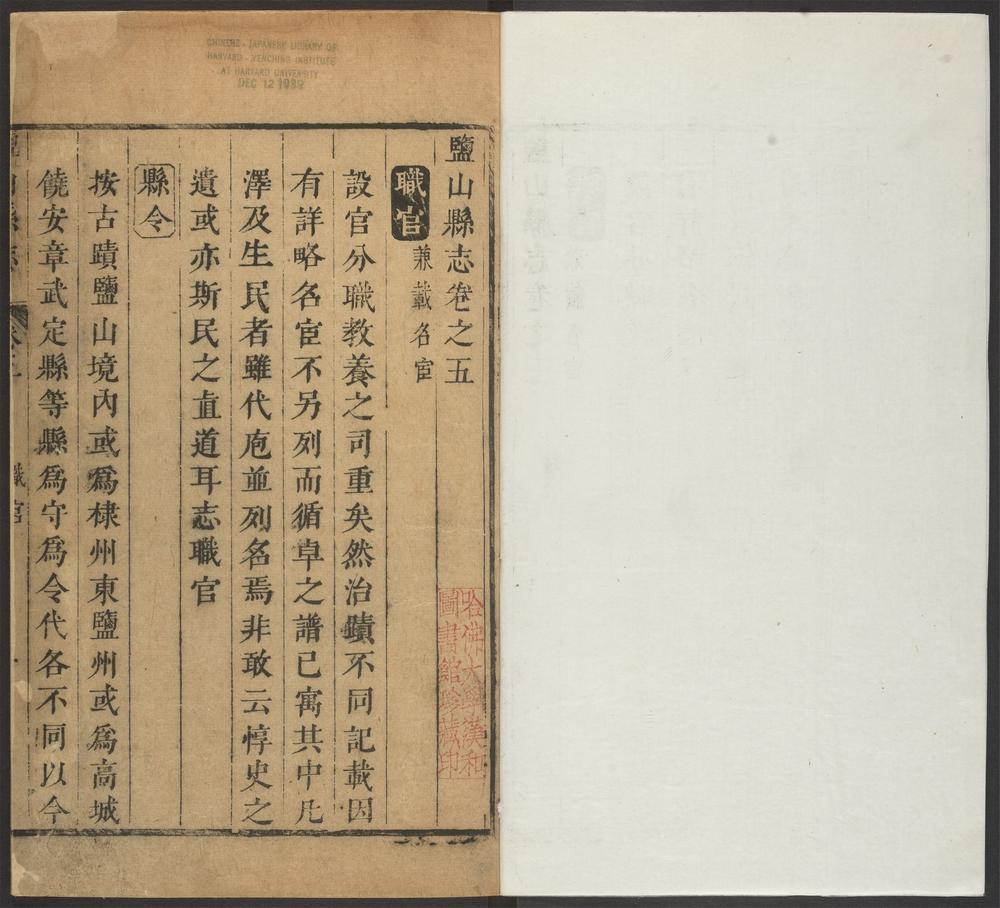 CHINESE - JAPANESE LIBRARY OF
HARVARD - YENCHING INSTITUTE
AT HARVARD UNIVERSITY
DEC 12 1939
鹽山縣志卷之五
職官 兼載名宦
設官分職教養之司重矣然治蹟不同記載因
有詳略名宦不另列而循卓之譜已寓其中凡
澤及生民者雖代庖並列名焉非敢云惇史之
遺或亦斯民之直道耳志職官
縣令
按古蹟鹽山境內或爲棣州東鹽州或爲高城
饒安章武定縣等縣爲守爲令代各不同以今
職官
哈佛大學漢和
圖書館珍藏印